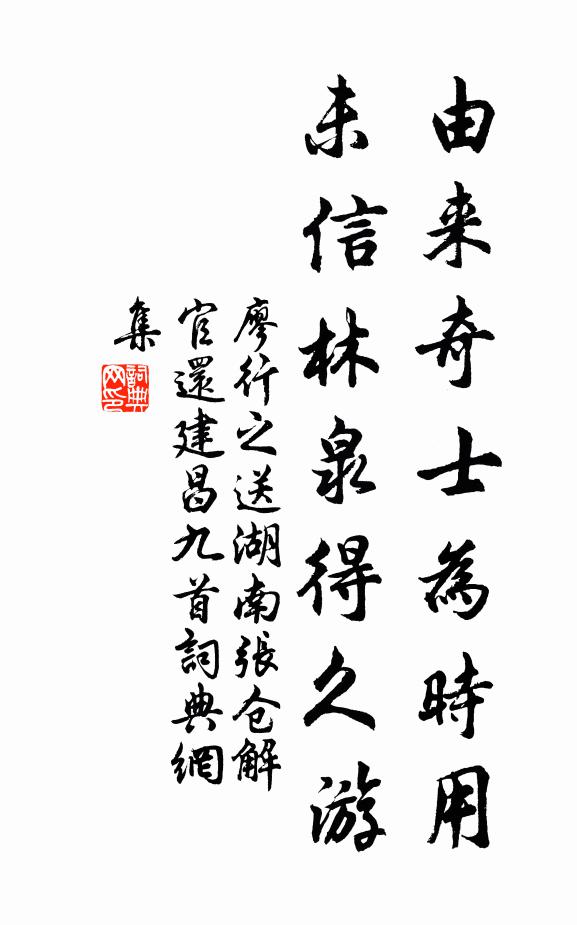 由来奇士為時用
未信林泉得久游
廖行之送湖南張仓解
官還建昌九首詞典網
集
詞典
网印